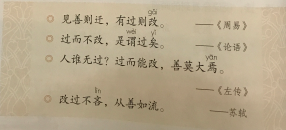 gǎi
见善则迁，有过则改。
——《周易》
wèi yǐ
过而不改，是谓过矣。
——《论语》
yān
人谁无过？过而能改，善莫大焉。
——《左传》
lìn
改过不吝，从善如流。
——苏轼